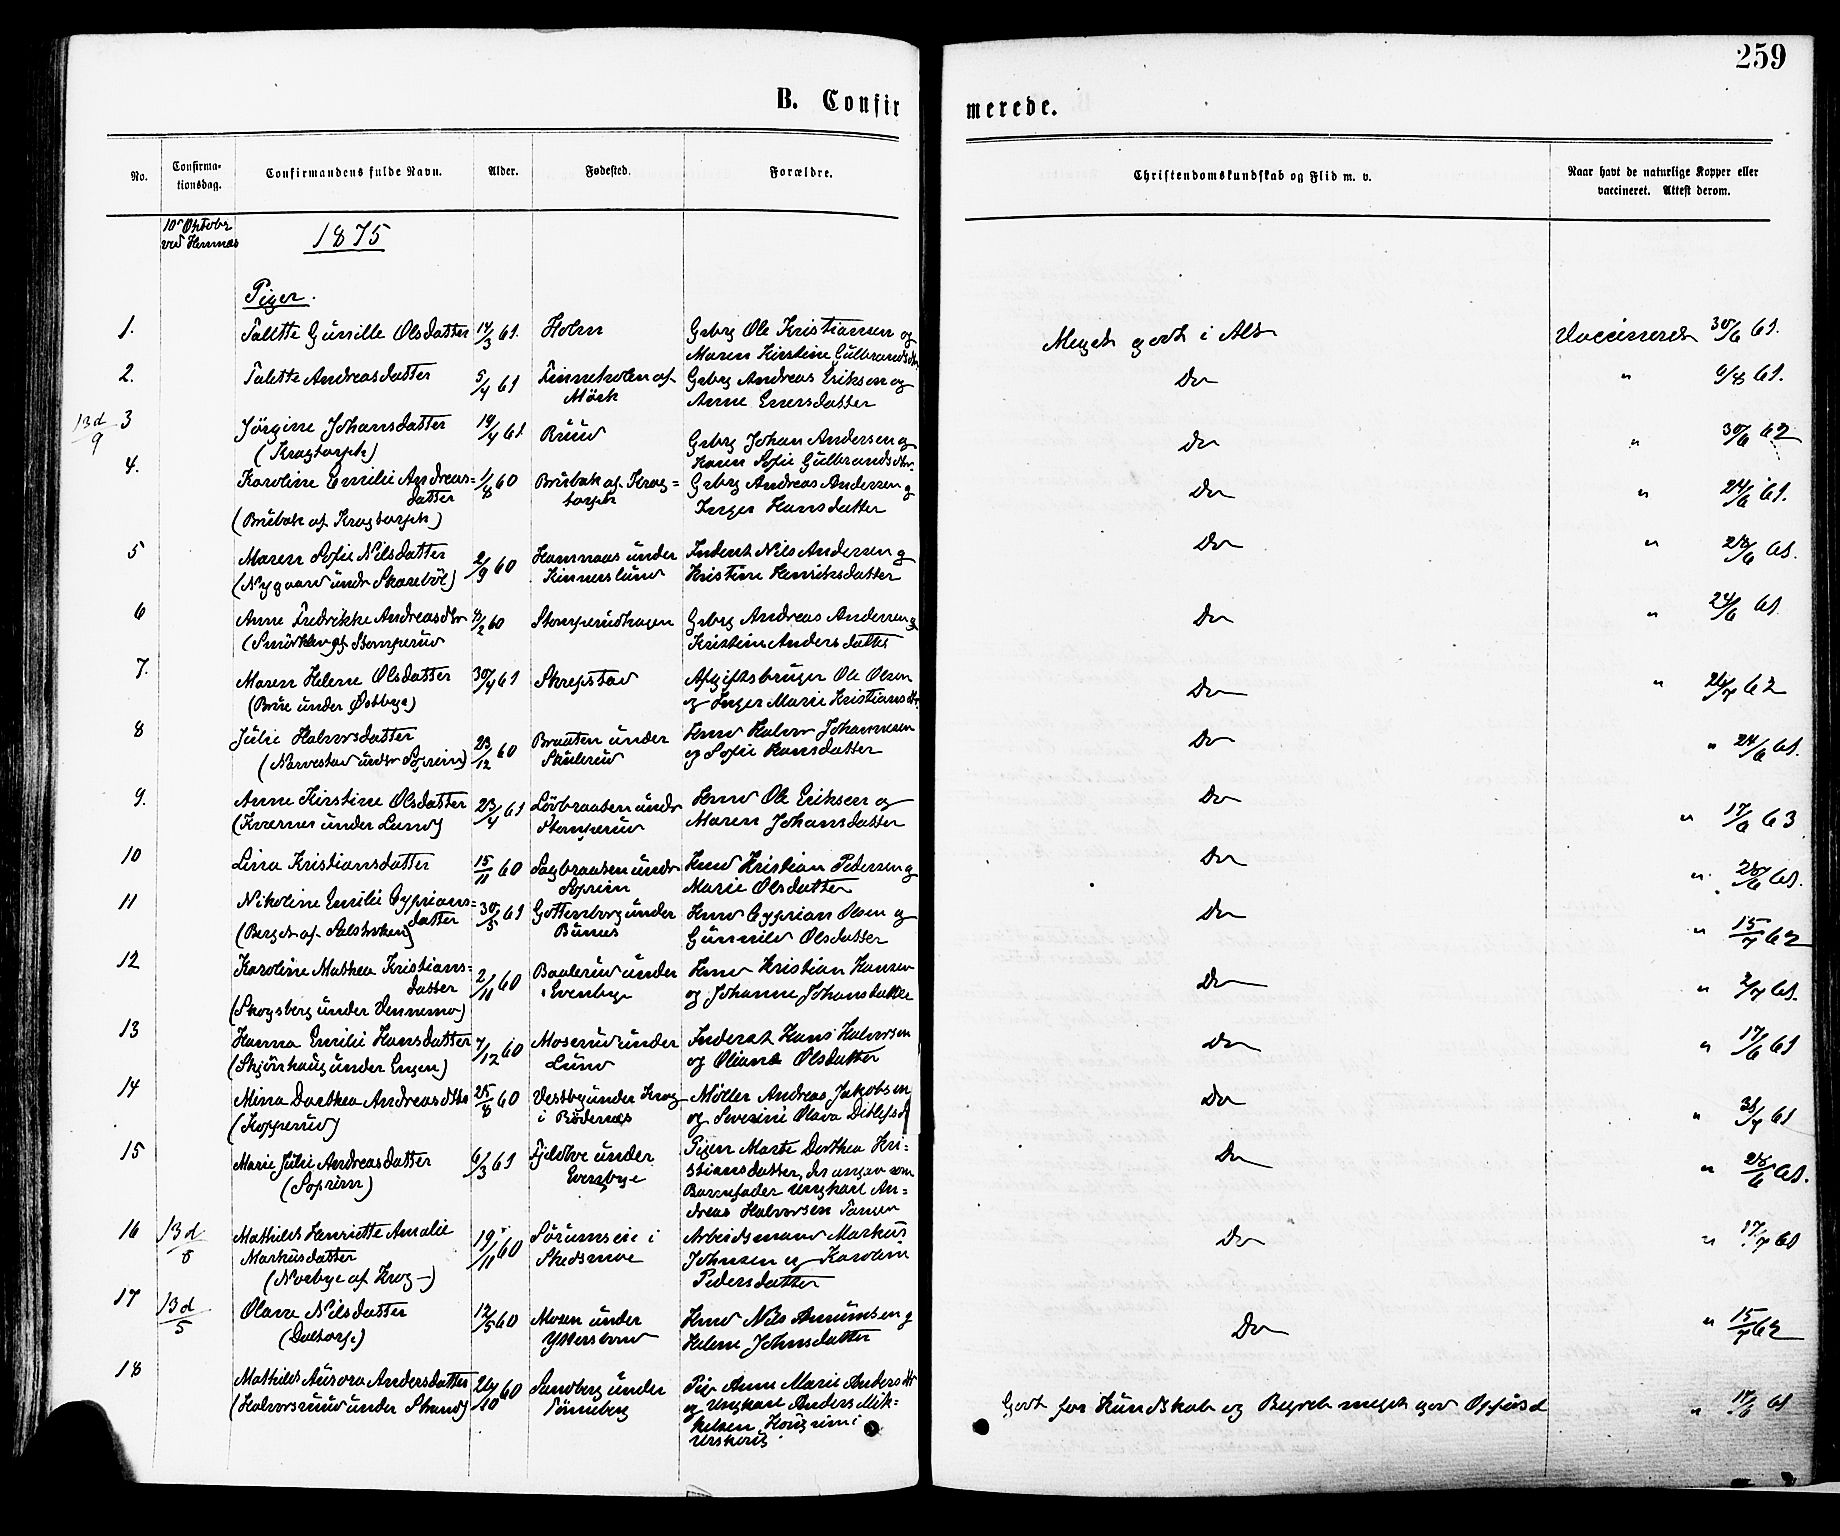 259
B. Confirmerede.
No.
Confirmationsdag.
Confirmandens fulde Navn.
Alder.
Fødested.
Forældre.
Christendomskundskab og Flid m. v.
Naar havt de naturlige Kopper eller vaccineret. Attest derom.
10de Oktober
ved Hemnæs
1875
Piger.
1. Talette Gunille Olsdatter 14/3 61. Holm Gsbrg Ole Kristiansen og
Maren Kirstine Gulbrandsdtr.
Meget godt i Alt Vaccineret 30/6 61.
2. Talette Andreasdatter 5/4 61 Finneholen af
Mörk
Gsbrg Andreas Eriksen og
Anne Enersdatter
Do " 9/8 61.
13d/9
3 Jørgine Johansdatter
(Kragtorph)
19/4 61 Ruud
Gsbrg Johan Andersen og
Karen Sofie Gulbrandsdtr.
Do " 30/6 62
4. Karoline Emilie Andreas=
datter
(Brubak af Kragtorph)
1/8 60 Brubak af Krag=
torph
Gsbrg Andreas Andersen og
Inger Hansdatter
Do " 24/6 61.
5 Maren Sofie Nilsdatter
(Nygaard under Skarebøl)
2/9 60 Hamnaas under
Kinnerslund
Inderst Nils Andersen og
Kristine Henriksdatter
Do " 28/6 61.
6 Anne Fredrikke Andreasdtr
(Smörkleng af Stomperud
8/2 60 Stomperudhagen
Gsbrg Andreas Andersen og
Kristine Andersdatter
Do " 24/6 61.
7. Maren Helene Olsdatter
(Brue under Østbye)
30/4 61 Skrepstad
Afgiftsbruger Ole Olsen
og Inger Marie Kristiansdtr.
Do " 26/7 62
8 Julie Halvorsdatter
(Narvestad under Soprim)
23/12 60 Braaten under
Skulerud
Hmd Halvor Johannesen
og Sofie Hansdatter
Do " 24/6 61.
9. Anne Kirstine Olsdatter
(Kvernes under Lund)
23/4 61 Lövbraaten under
Stomperud
Hmd Ole Eriksen og
Maren Johansdatter
Do " 17/6 63
10 Lina Kristiansdatter 15/11 60 Sagbraaten under
Soprim
Hmd Kristian Pedersen og
Marie Olsdatter
Do " 28/6 61.
11 Nikoline Emilie Cyprians=
datter
30/5 61 Gottenborg under
Bunes
Hmd Cyprian Olsen og
Gunnild Olsdatter
Do " 15/7 62
12 Karoline Mathea Kristians=
datter
(Skogsberg under Vennemo)
2/11 60 Baalerud under
Evenbye
Hmd Kristian Hansen
og Johanne Johansdatter
Do " 2/7 61.
13 Hanna Emilie Hansdatter
(Skjönhaug under Engen)
7/12 60 Moserud under
Lund
Inderst Hans Halvorsen
og Oliane Olsdatter
Do " 17/6 61
14 Mina Dorthea Andreasdtr
(Kopperud)
25/8 60 Vestby under Krog
i Rødenæs
Møller Andreas Jakobsen
og Severine Olava Ditlefsd
Do " 31/7 61
15 Marie Julie Andreasdatter
(Soprim)
6/3 61 Fjeldtve under
Evenbye
Pigen Marte Dorthea Kri=
stiansdatter, der angav som
Barnefader Ungkarl An=
dreas Halvorsen Tangen
Do " 28/6 61.
16 13d/8
Mathilde Henriette Amalie
Markusdatter
(Norbye af Krog-)
19/11 60 Sörumseie i
Skedsmoe
Arbeidsmand Markus
Johnsen og Karoline
Pedersdatter
Do " 17/7 61
17 13d/5
Olava Nilsdatter
(Daltorp)
12/5 60 Mosen under
Yttersbraad
Hmd Nils Amundsen og
Helene Johnsdatter
Do " 15/7 62
18 Mathilde Aurora Andersdatter
(Halvorsruud under Strand)
26/10 60 Sandberg under
Tönneberg
Pige Anne Marie Andersdtr
og Ungkarl Anders Mik=
kelsen Haugrim i
Urskoug
Godt for Kundskab og Begreb meget god Opførsel " 17/6 61